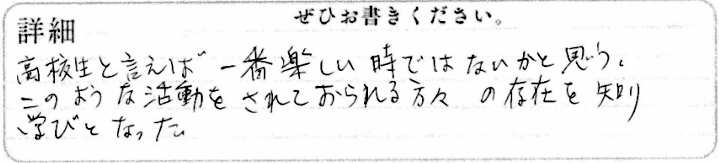 ぜひお書きください。
詳細
高校生と言えば 一番楽しい時ではないかと思う。
このような活動をされておられる方々 の存在を知り
学びとなった